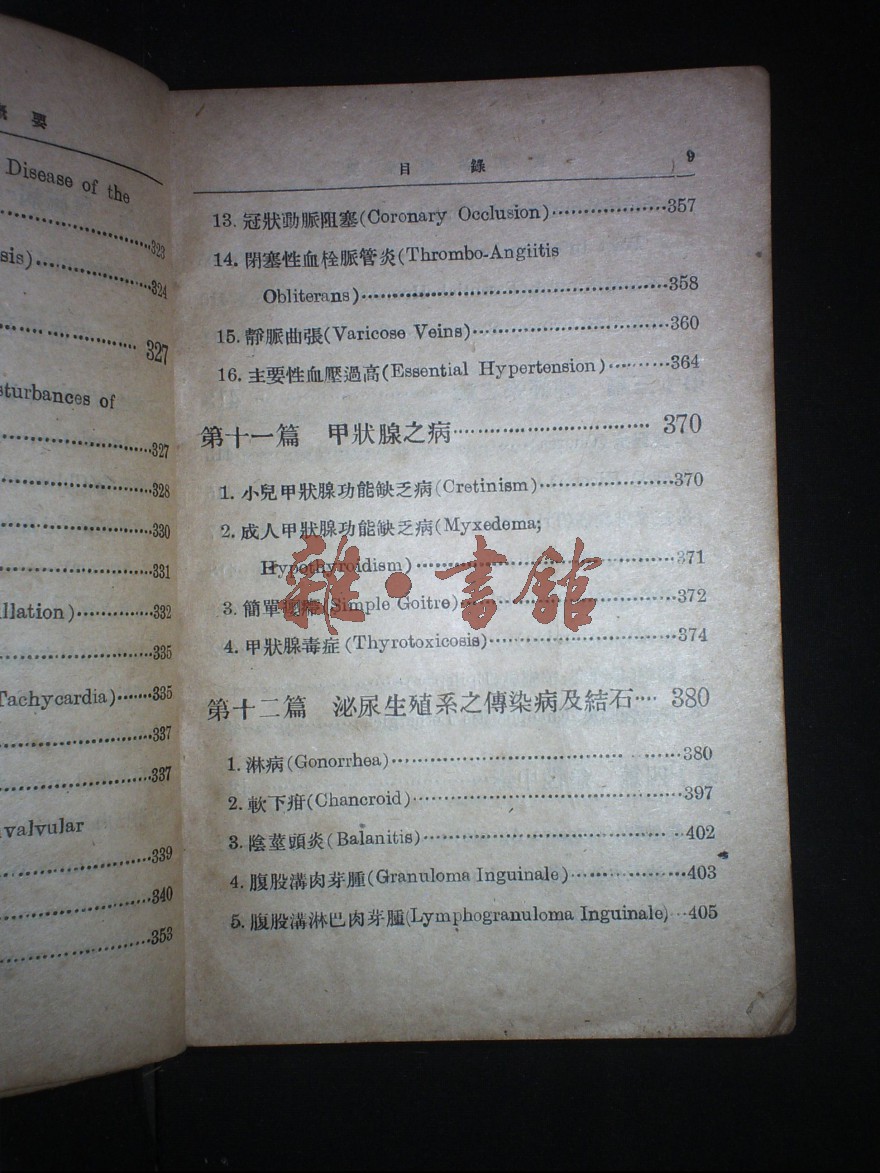 要
Disease of the
323
sis)
324
327
sturbances of
327
328
330
331
llation)
332
335
Tachycardia)
335
337
337
valvular
339
340
353
目 錄 9
13. 冠狀動脈阻塞(Coronary Occlusion) 357
14. 閉塞性血栓脈管炎(Thrombo-Angiitis
Obliterans) 358
15. 靜脈曲張(Varicose Veins) 360
16. 主要性血壓過高(Essential Hypertension) 364
第十一篇 甲狀腺之病 370
1. 小兒甲狀腺功能缺乏病(Cretinism) 370
2. 成人甲狀腺功能缺乏病(Myxedema;
Hypothyroidism) 371
3. 簡單(Simple Goitre) 372
4. 甲狀腺毒症(Thyrotoxicosis) 374
第十二篇 泌尿生殖系之傳染病及結石 380
1. 淋病(Gonorrhea) 380
2. 軟下疳(Chancroid) 397
3. 陰莖頭炎(Balanitis) 402
4. 腹股溝肉芽腫(Granuloma Inguinale) 403
5. 腹股溝淋巴肉芽腫(Lymphogranuloma Inguinale) 405
雜·書館